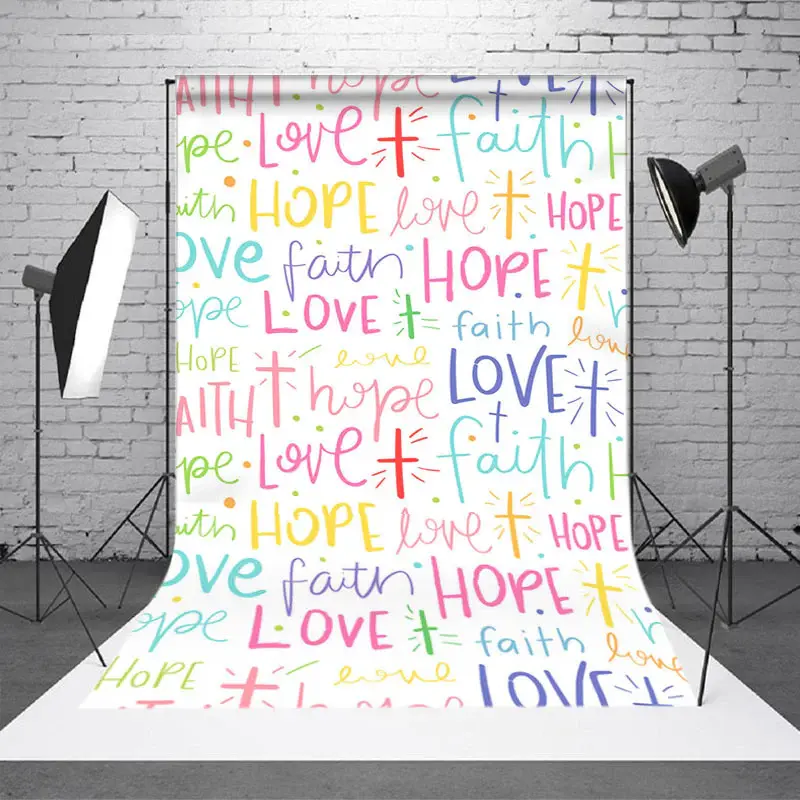 AITH hope LOVE
pe Love faith H
aith HOPE love HOPE
ove faith HOPE
ope LOVE faith lov
HOPE love LOVE
AITH hope
pe Love faith H
aith HOPE love HOPE
ove faith HOPE
ope LOVE faith love
HOPE love LOVE
hope